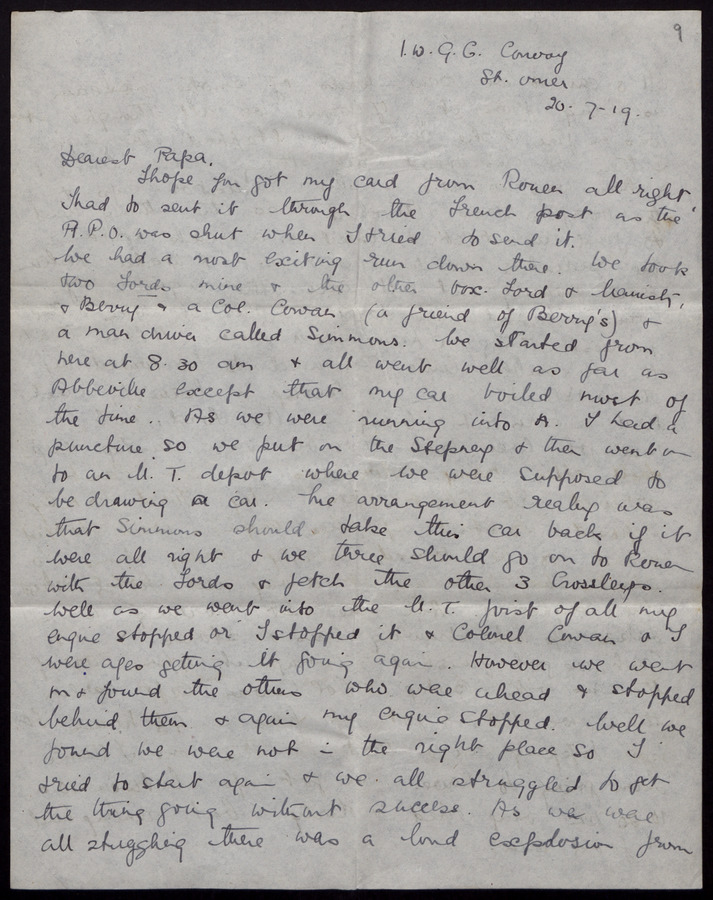 9
I.W.G.C. Convoy
St. Omer
20-7-19.
Dearest Papa.
I hope you got my card from Rouen all right,
I had to sent it through the French post as the
A.P.O. was shut when I tried to send it.
We had a most exciting run down there. We took
two Fords mine & the other box-Ford & Hamish,
& Berry & a Col. Cowan (a friend of Berry's) &
a man driver called Simmons. We started from
here at 8.30 am & all went well as far as
Abbeville except that my car boiled most of
the time.. As we were running into A. I had a
puncture so we put on the Stepney & then went on
to an M.T. depot where we were supposed to
be drawing a car. The arrangement really was
that Simmons should take this car back if it
were all right & we three should go on to Rouen
with the Fords & fetch the other 3 Crossleys.
Well as we went into the M.T. first of all my
engine stopped or I stopped it & Colonel Cowan & I
were ages getting it going again. However we went
on & found the others who were ahead & stopped
behind them & again my engine stopped. Well we
found we were not in the right place so I
tried to start again & we all struggled to get
the thing going without success. As we were
all struggling there was a loud explosion from